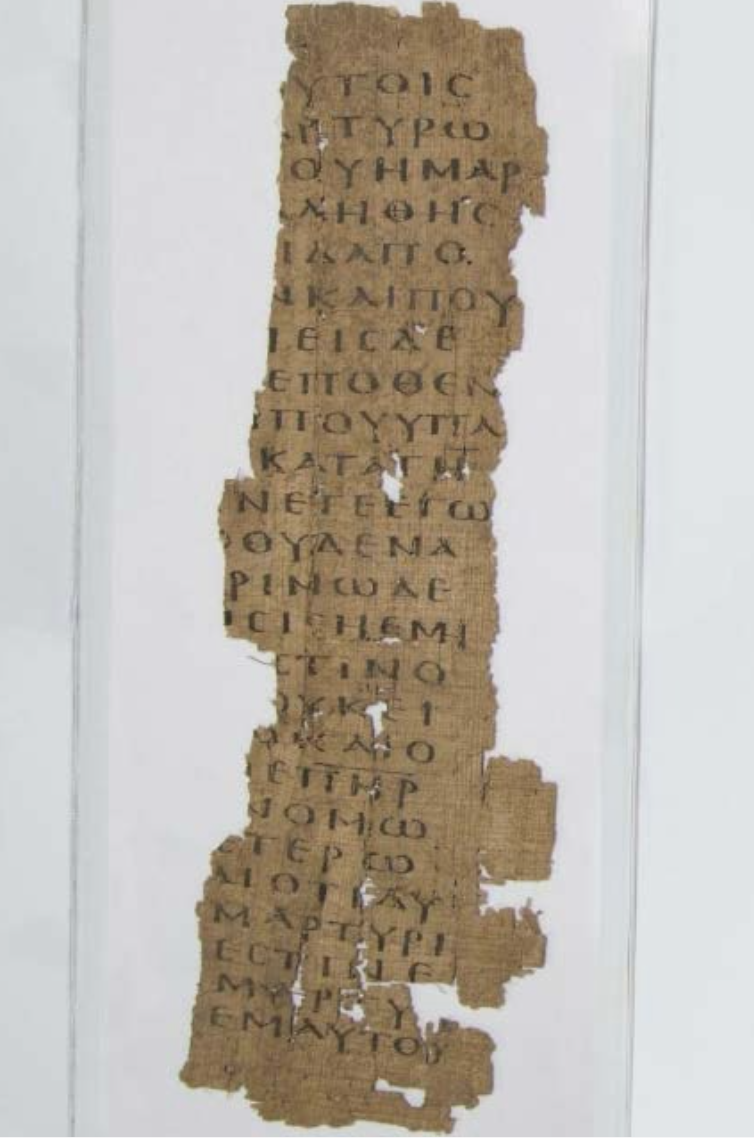 ΥΤΟΙϹ
ΡΤΥΡΩ
ΟΥΗΜΑΡ
ΑΛΗΘΗϹ
ΙΔΑΠΟ
ΝΚΑΙΠΟΥ
ΙΕΙϹΔΕ
ΕΠΟΘΕΝ
ΠΟΥΥΠΑ
ΚΑΤΑΤΗ
ΝΕΤΕΕΓΩ
ΟΥΔΕΝΑ
ΡΙΝΩΔΕ
ΙϹΙϹΗΕΜΗ
ϹΤΙΝΟ
ΟΥΚΕΙ
ΚΑΙΟ
ΕΠΗΡ
ΝΟΜΩ
ΕΤΕΡΩ
ΝΟΤΙΔΥ
ΜΑΡΤΥΡΙ
ΕϹΤΙΝΕ
ΕΜΑΥΤΟΥ